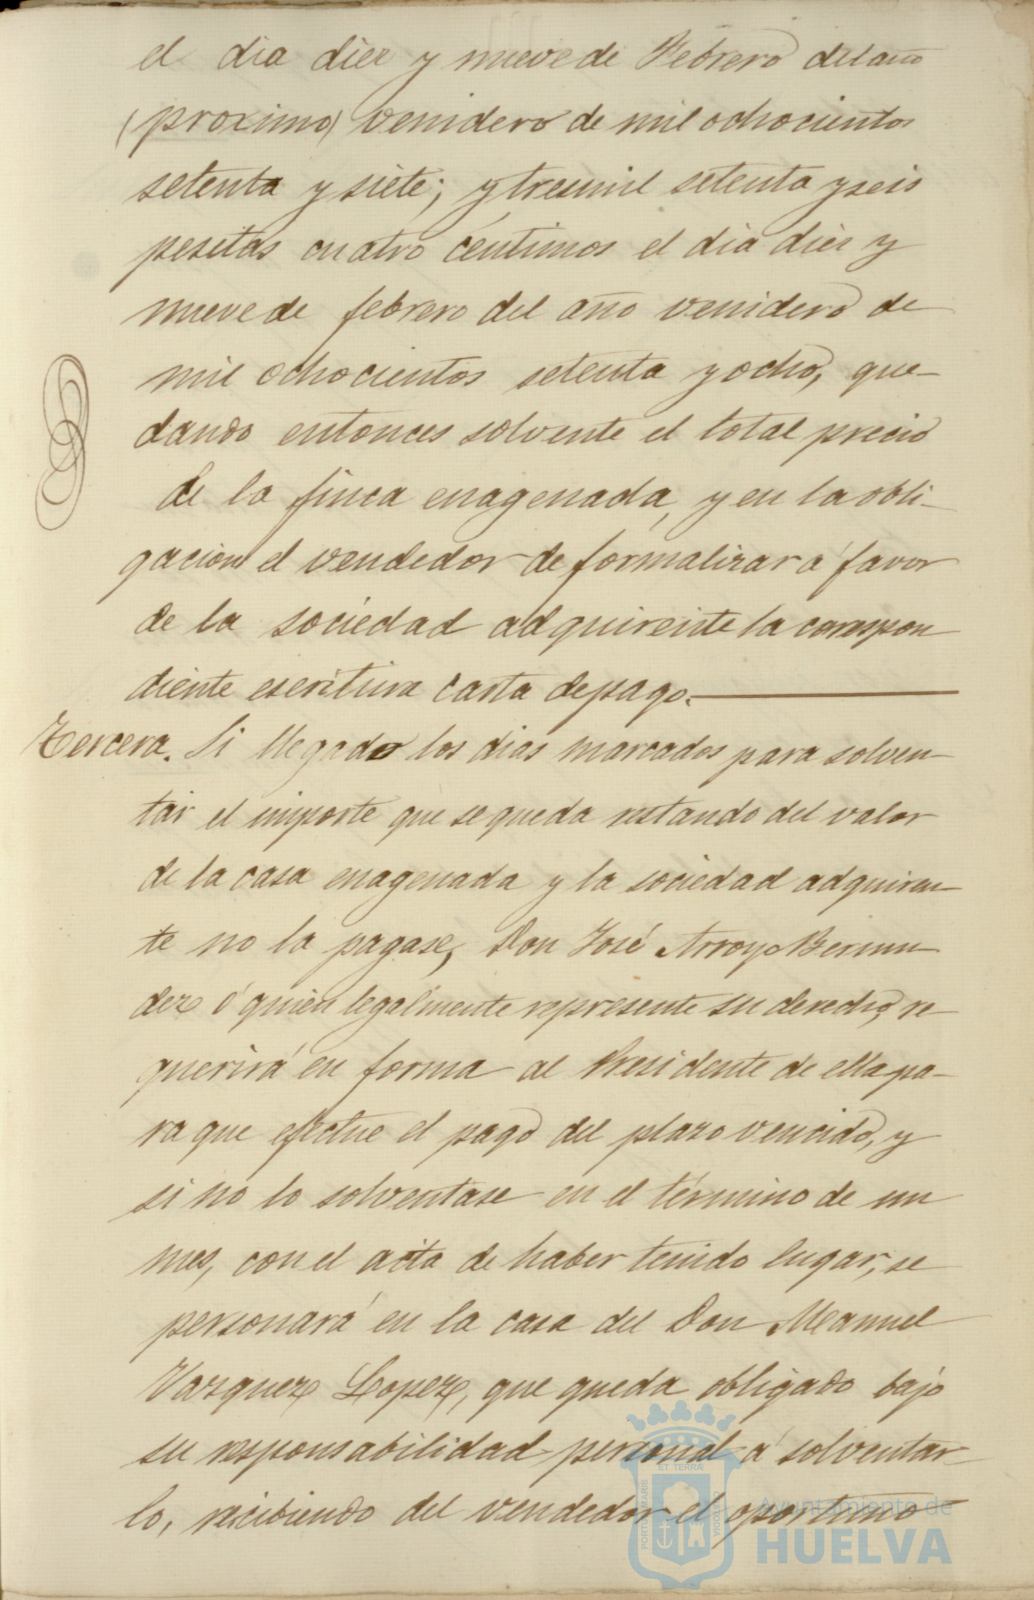 el dia diez y nueve de Febrero del año
(proximo) venidero de mil ochocientos
setenta y siete; y tres mil setenta y seis
pesetas cuatro centimos el dia diez y
nueve de febrero del año venidero de
mil ochocientos setenta y ocho, que-
dando entonces solvente el total precio
de la finca enagenada, y en la obli-
gacion el vendedor de formalizar á favor
de la sociedad adquirente la correspon
diente escritura carta de pago.
Tercera. Si llegado los dias marcados para solven-
tar el importe que se queda restando del valor
de la casa enagenada y la sociedad adquiren-
te no la pagase, Don José Arroyo Bermu
dez ó quien legalmente represente su derecho, re
querirá en forma al Presidente de ella pa-
ra que efectue el pago del plazo vencido, y
si no lo solventase en el término de un
mes, con el acta de haber tenido lugar, se
personará en la casa del Don Manuel
Vazquez Lopez, que queda obligado bajo
su responsabilidad personal á solventar-
lo, recibiendo del vendedor el oportuno
PORTUS MARIS
ET TERRÆ
Ayuntamiento de
HUELVA